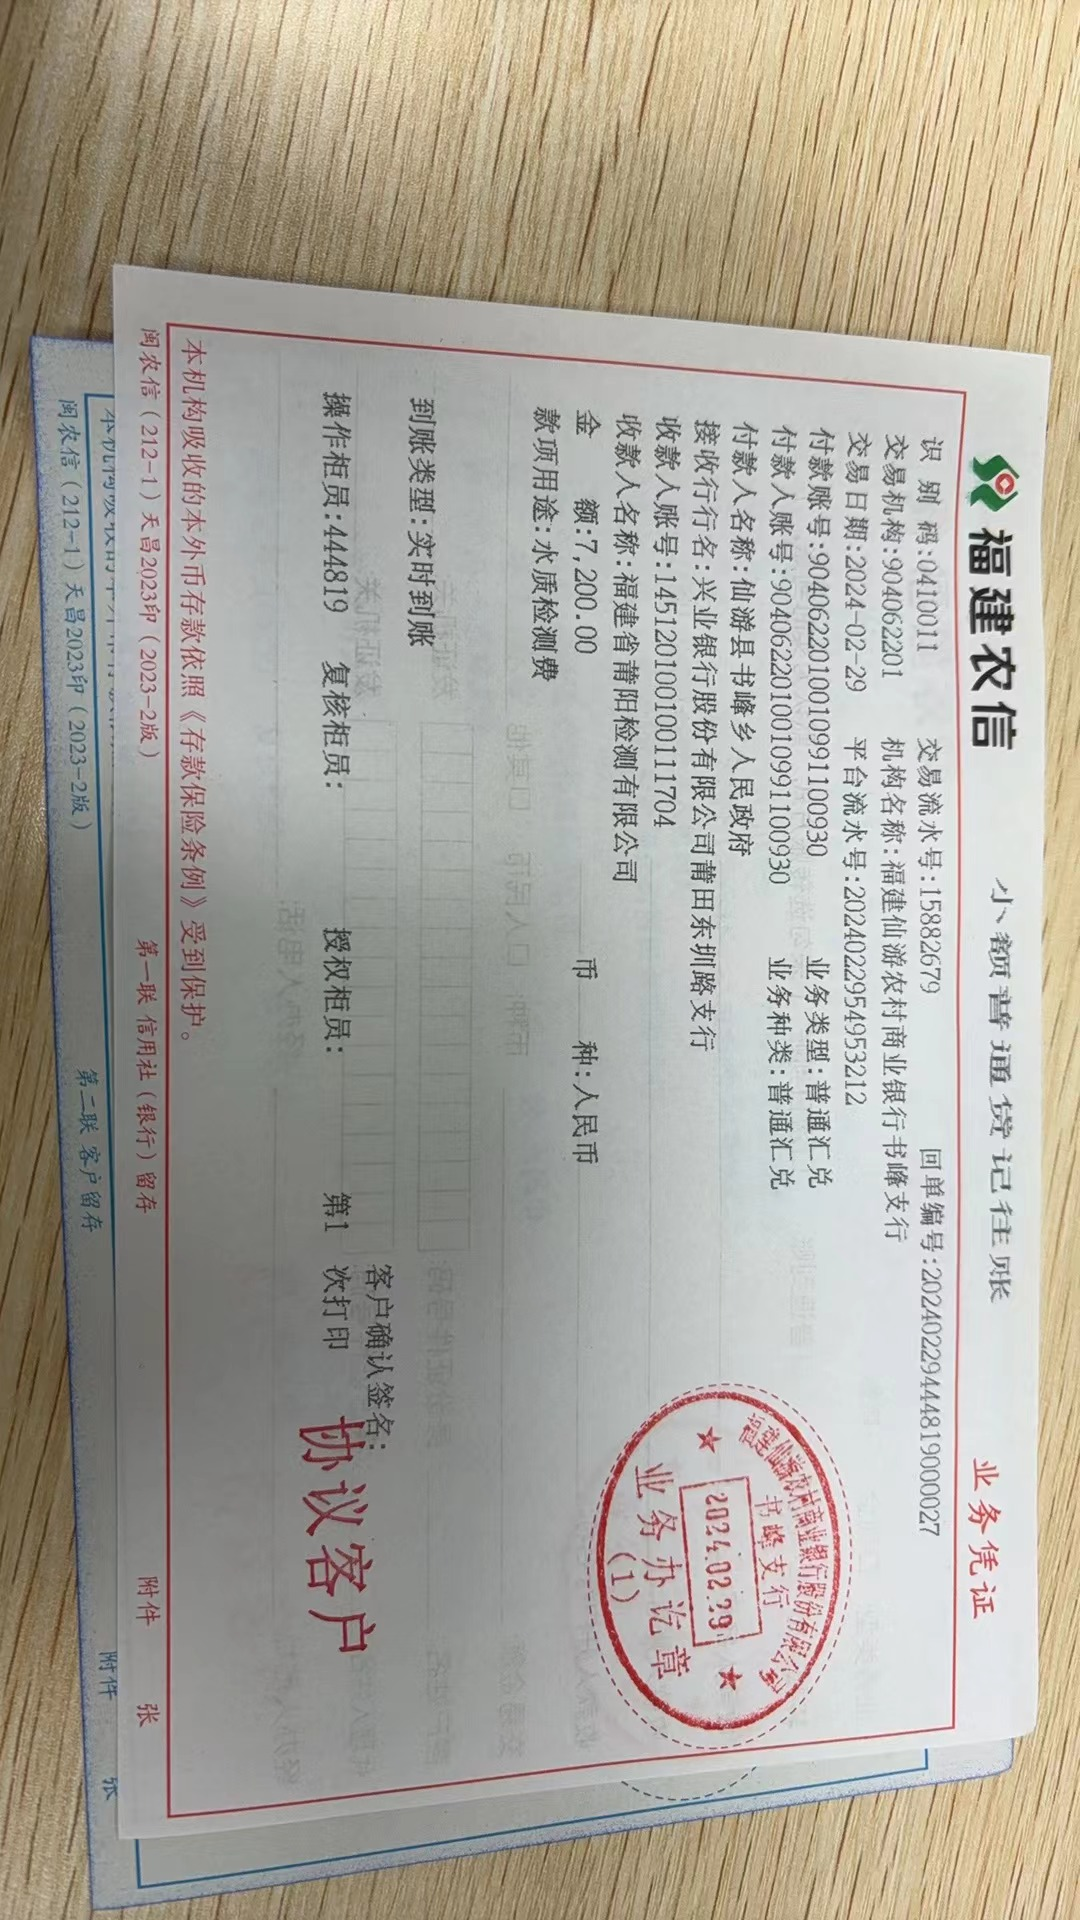 福建农信
小额普通贷记往账
业务凭证
识 别 码:0410011 交易流水号:15882679 回单编号:20240229444819000027
交易机构:904062201 机构名称:福建仙游农村商业银行书峰支行
交易日期:2024-02-29 平台流水号:2024022954953212
付款账号:9040622010010991100930 业务类型:普通汇兑
付款人账号:9040622010010991100930 业务种类:普通汇兑
付款人名称:仙游县书峰乡人民政府
接收行行名:兴业银行股份有限公司莆田东圳路支行
收款人账号:145120100100111704
收款人名称:福建省莆阳检测有限公司
金 额:7,200.00 币 种:人民币
款项用途:水质检测费
到账类型:实时到账
客户确认签名:
操作柜员:444819 复核柜员: 授权柜员: 第1 次打印
协议客户
福建仙游农村商业银行股份有限公司
书峰支行
2024.02.29
业务办讫章
(1)
本机构吸收的本外币存款依照《存款保险条例》受到保护。
闽农信(212-1)天昌2023印(2023-2版) 第一联 信用社(银行)留存 附件 张
闽农信(212-1)天昌2023印(2023-2版) 第二联 客户留存 附件 张